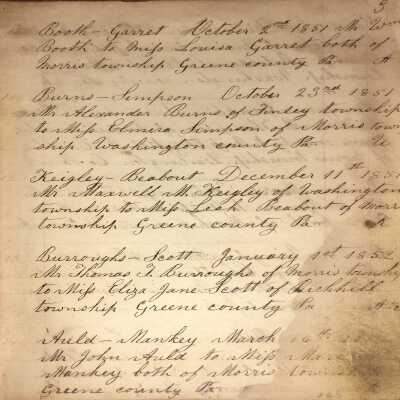 3
Booth – Garret October 2nd 1851 Mr Wm
Booth to Miss Louisa Garret both of
Morris township Greene county Pa
Burns – Simpson October 23rd 1851
Mr Alexander Burns of Finley township
to Miss Elmira Simpson of Morris town
ship Washington county Pa
Keigley – Beabout December 11th 1851
Mr Maxwell M. Keigley of Washington
township to Miss Leah Beabout of Morris
township Greene county Pa
Burroughs – Scott January 1st 1852
Mr Thomas T. Burroughs of Morris township
to Miss Eliza Jane Scott of Richhill
township Greene county Pa
Auld – Mankey March
Mr John Auld to Miss
Mankey both of Morris township
Greene county Pa